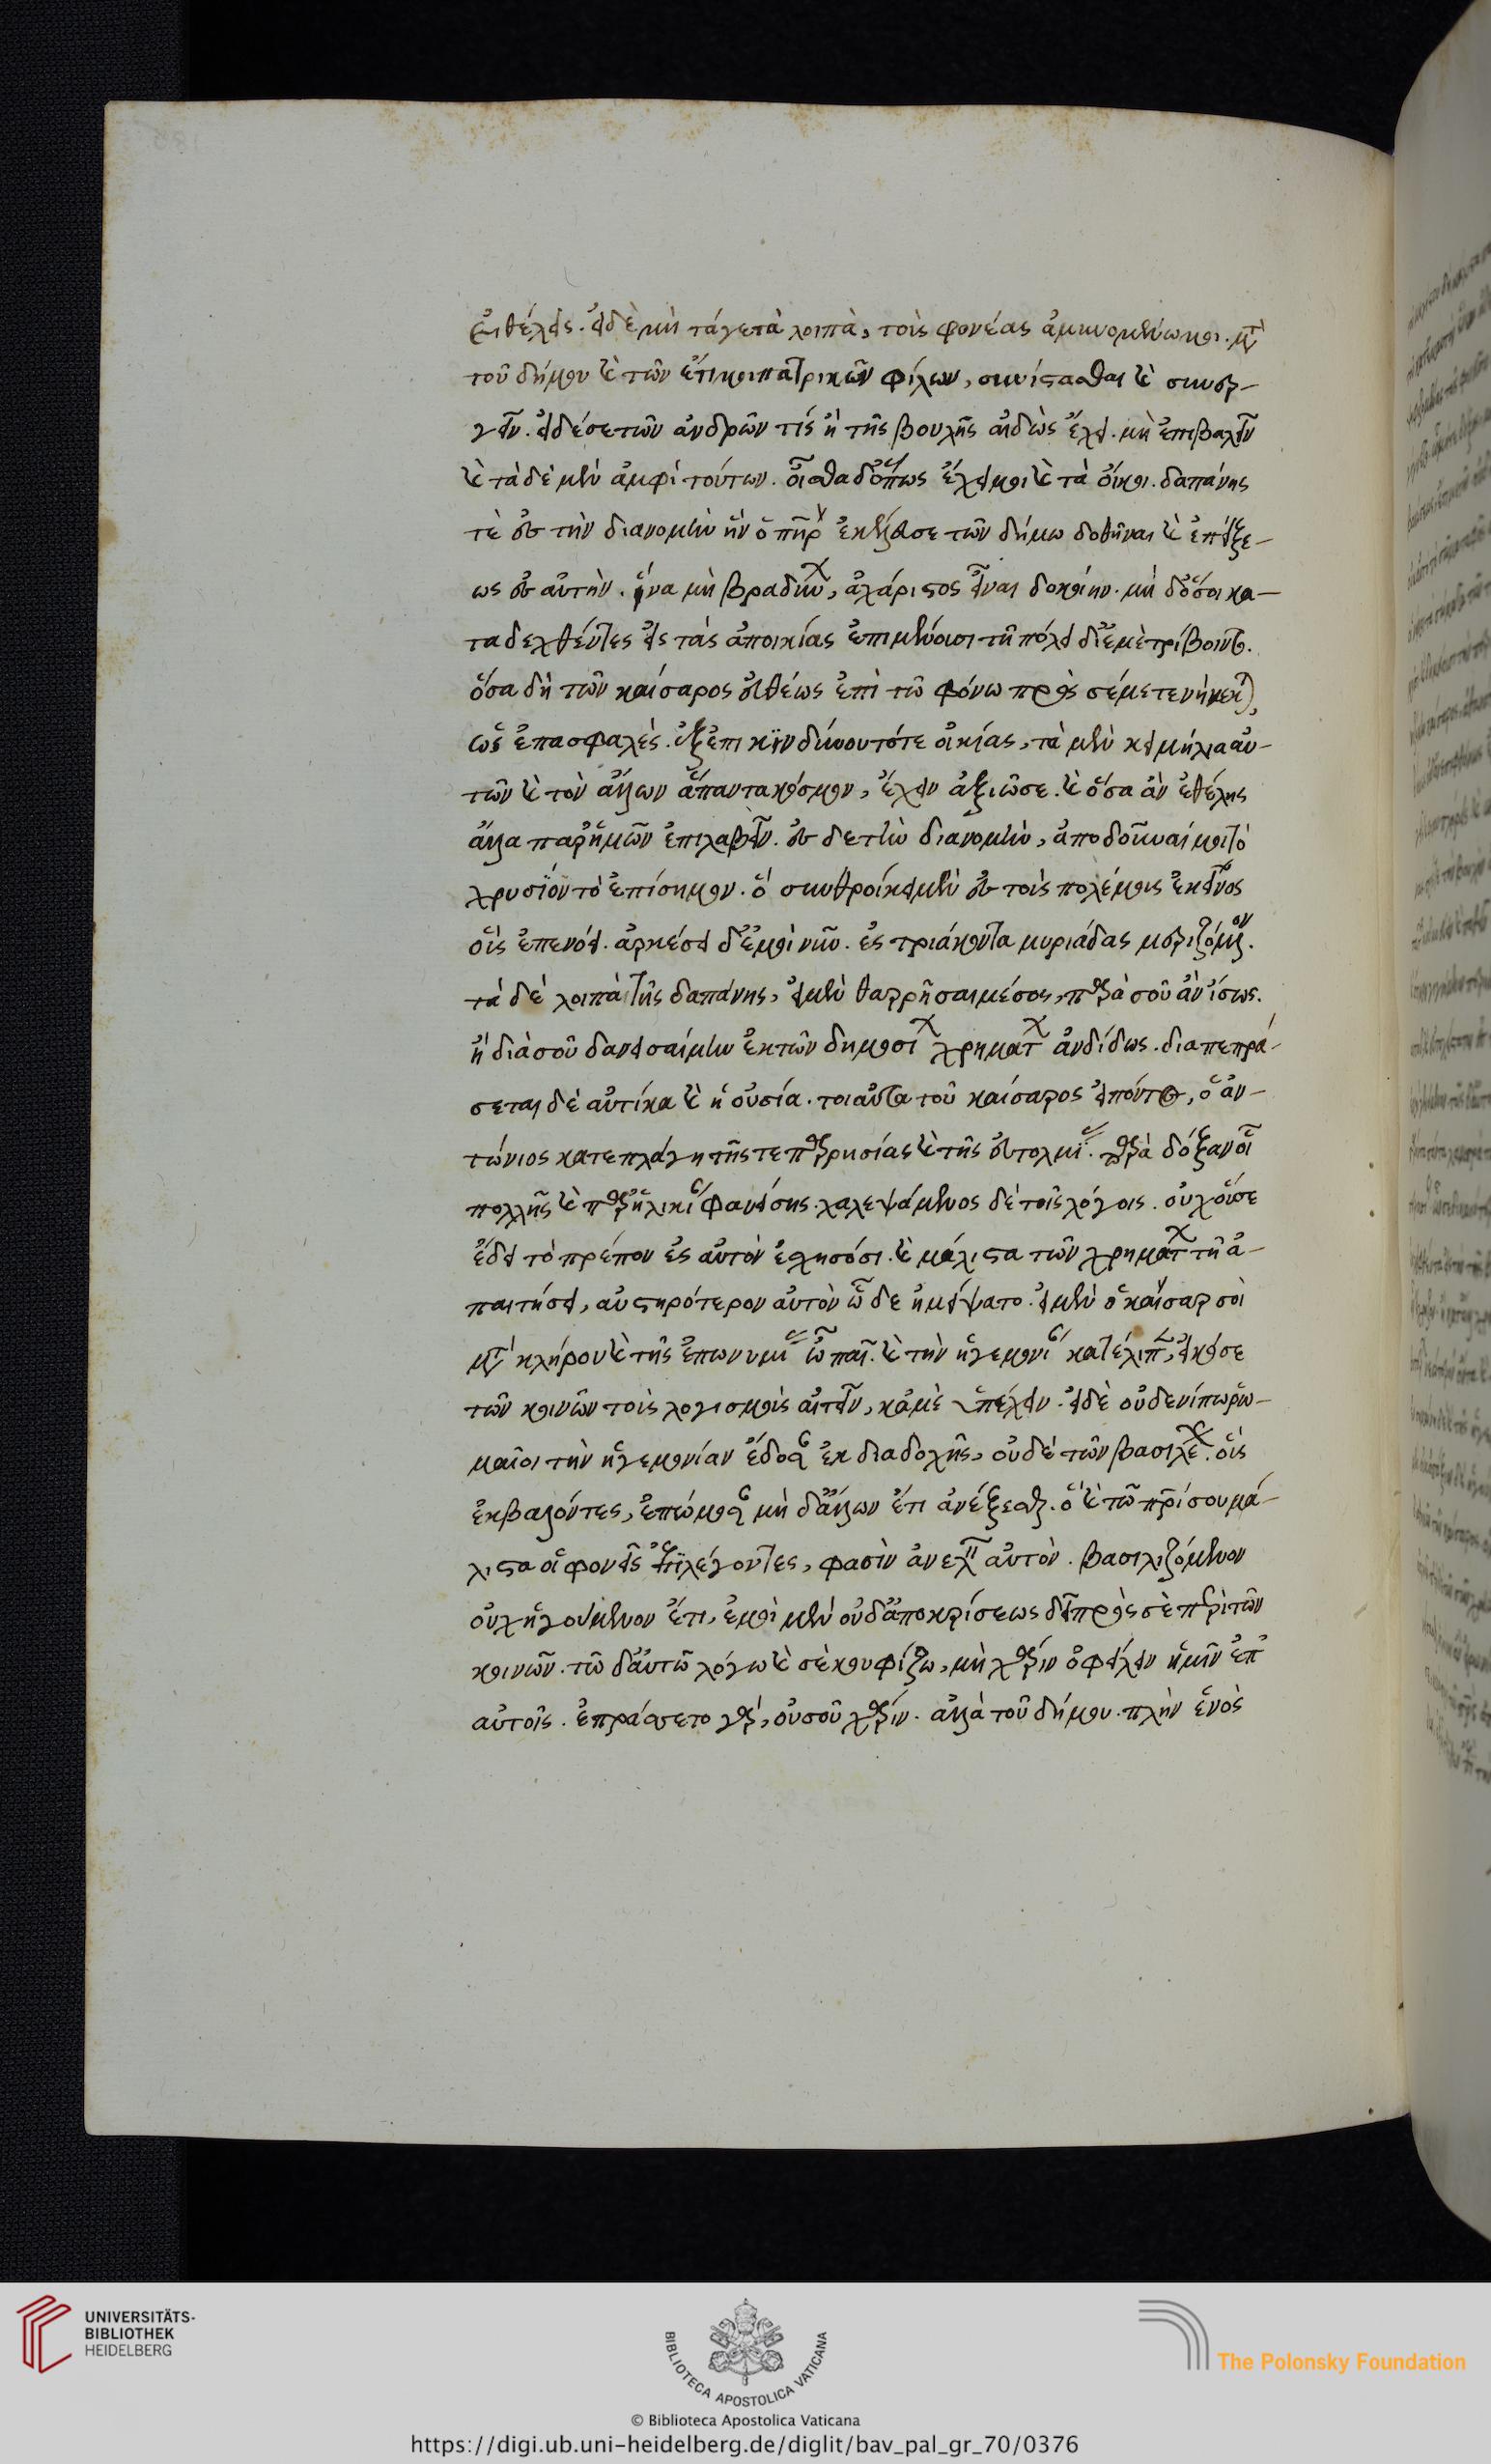 εὖ ἐθέλεις. εἰ δὲ μὴ τά γε τὰ λοιπὰ, τοὺς φονέας ἀμυνομένωμοι. μετὰ
τοῦ δήμου καὶ τῶν ἔτι μοι πατρικῶν φίλων, συνίστασθαι καὶ συνερ-
γεῖν. εἰ δέ σε τῶν ἀνδρῶν τίς ἢ τῆς βουλῆς αἰδὼς ἔχει. μὴ ἐπιβαλεῖν
καὶ τὰ δὲ μὲν ἀμφὶ τούτων. οἶσθα δ' ὅπως ἔχει μοι καὶ τὰ οἴκοι. δαπάνης
τὲ ἐς τὴν διανομὴν ἣν ὁ πηρ ἐκέλευσε τῶν δήμω δοθῆναι καὶ ἐπείξε-
ως ἐς αὐτὴν. ἵνα μὴ βραδύνων, ἀχάριστος εἶναι δοκοίην. μὴ δ' ὅσοι κα-
ταδεχθέντες εἰς τὰς ἀποικίας ἐπιμένουσι τῆ πόλει δι' ἐμὲ τρίβοιντο.
ὅσα δὴ τῶν καίσαρος εὐθέως ἐπὶ τῶ φόνω πρὸς σέ μετενήνεκται,
ὡς ἐπασφαλὲς. ἐξ ἐπικϊνδύνου τότε οἰκίας, τὰ μὲν κειμήλια αὐ-
τῶν καὶ τὸν ἄλλων ἅπαντα κόσμον, ἔχειν ἀξιῶσε. καὶ ὅσα ἂν ἐθέλης
ἄλλα παρ' ἡμῶν ἐπιλαβεῖν. ἐς δε τὴν διανομὴν, ἀποδοῦναί μοι τὸ
χρυσϊον τὸ ἐπίσημον. ὅ συνηθροίκει μὲν ἐς τοὺς πολέμους ἐκεῖνος
οἷς ἐπενόει. ἀρκέσει δ' ἐμοὶ νῦν. ἐς τριάκοντα μυριάδας μεριζόμενον.
τὰ δὲ λοιπὰ τῆς δαπάνης, εἰ μὲν θαρρῆσαιμέσος, παρὰ σοῦ ἂν ἴσως.
ἢ διὰ σοῦ δανεισαίμην ἐκ τῶν δημοσί χρηματ ἂν δίδως. διαπεπρά-
σεται δὲ αὐτίκα καὶ ἡ οὐσία. τοιαῦτα τοῦ καίσαρος εἰπόντος, ὁ ἀν-
τώνιος κατεπλάγη τῆς τε παρρησίας καὶ τῆς εὐτολμί. παρὰ δόξαν οἷ
πολλῆς καὶ παρ' ἡλικί φανείσης. χαλεψάμενος δὲ τοῖς λόγοις. οὐχ ὅσσε
ἔδει τὸ πρέπον ἐς αὐτὸν ἐχησόσι. καὶ μάλιστα τῶν χρηματ τῆ ἀ-
παιτήσει, αὐστηρότερον αὐτὸν ὧδε ἠμείψατο. εἰ μὲν ὁ καῖσαρ σοὶ
μετὰ κλήρου καὶ τῆς ἐπωνυμί ὦ παῖ. καὶ τὴν ἡγεμονί κατέλιπ, εἰκόσε
τῶν κοινῶν τοὺς λογισμοὺς αἰτεῖν, κἀμὲ ὑπέχειν. εἰ δὲ οὐδενί πω ῥω-
μαῖοι τὴν ἡγεμονίαν ἔδοσαν ἐκ διαδοχῆς, οὐδὲ τῶν βασιλέ. οὓς
ἐκβαλόντες, ἐπώμοσαν μὴ δ' ἄλλων ἔτι ἀνέξεσθαι. ὃ καὶ τῶ πρί σου μά-
λιστα οἱ φονεῖς ἐπϊλέγοντες, φασὶν ἀνελεῖν αὐτὸν. βασιλιζόμενον
οὐχ ἡγούμενον ἔτι, ἐμοὶ μὲν οὐδ' ἀποκρίσεως δεῖ πρὸς σὲ περὶ τῶν
κοινῶν. τῶ δ' αὐτῶ λόγω καὶ σὲ κουφίζω, μὴ χάριν ὀφείλειν ἡμῖν ἐπ'
αὐτοῖς. ἐπράσσετο γὰρ, οὐ σοῦ χάριν. ἀλλὰ τοῦ δήμου. πλὴν ἑνὸς
UNIVERSITÄTS-
BIBLIOTHEK
HEIDELBERG
BIBLIOTECA APOSTOLICA VATICANA
The Polonsky Foundation
© Biblioteca Apostolica Vaticana
https://digi.ub.uni-heidelberg.de/diglit/bav_pal_gr_70/0376